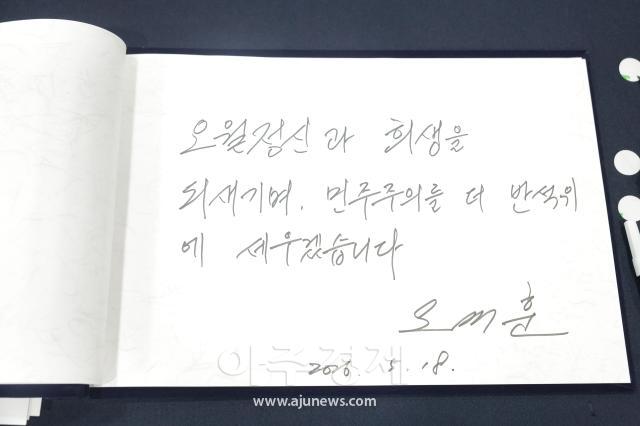 오월정신과 희생을
되새기며, 민주주의를 더 반석위
에 세우겠습니다
오세훈
2026 5. 18.
아주경제
www.ajunews.com